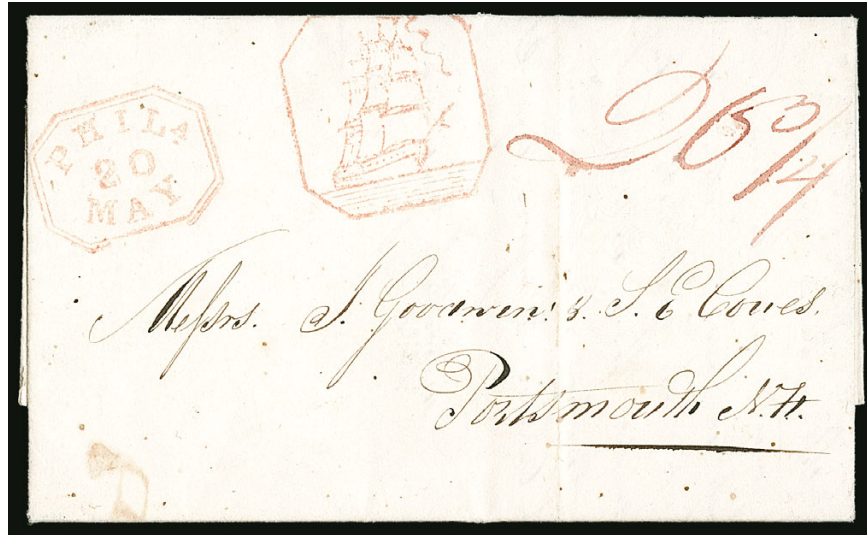 PHILA
20
MAY
Messrs. I. Goodwin & S. E Coues.
Portsmouth N.H.